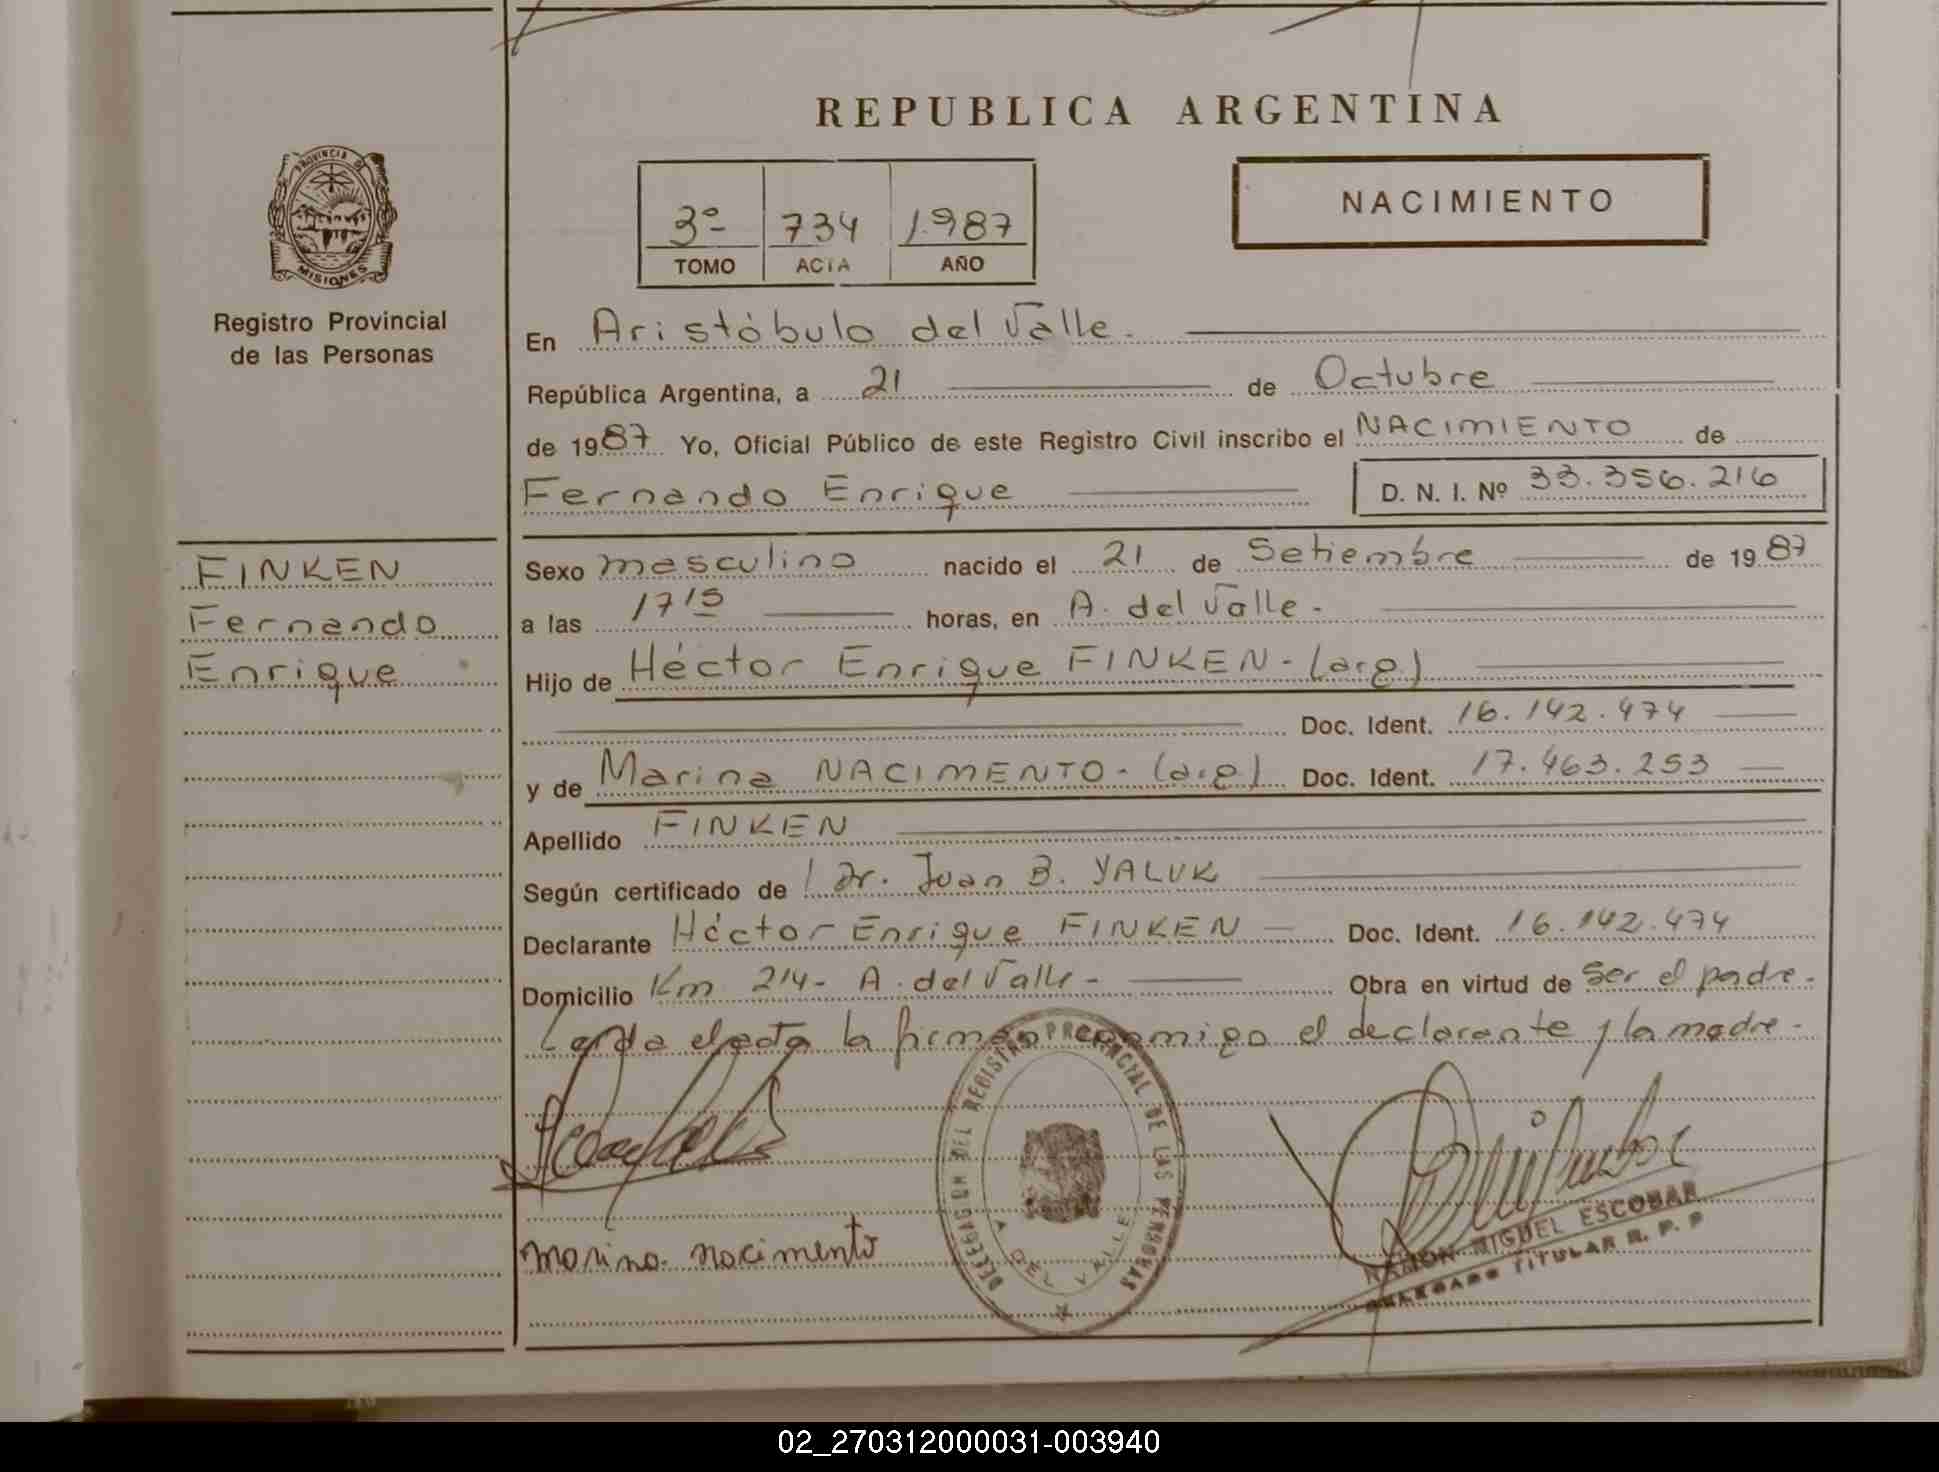 REPUBLICA ARGENTINA
PROVINCIA DE
MISIONES
Registro Provincial
de las Personas
3º 734 1.987
TOMO ACTA AÑO
NACIMIENTO
En Aristóbulo del Valle.
República Argentina, a 21 de Octubre
de 1987 Yo, Oficial Público de este Registro Civil inscribo el NACIMIENTO de
Fernando Enrique D. N. I. Nº 33.356.216
FINKEN
Fernando
Enrique
Sexo masculino nacido el 21 de Setiembre de 1987
a las 17 15 horas, en A. del Valle.
Hijo de Héctor Enrique FINKEN - (arg.)
Doc. Ident. 16.142.474
y de Marina NACIMENTO - (arg) Doc. Ident. 17.463.253
Apellido FINKEN
Según certificado de Dr. Juan B. YALUK
Declarante Héctor Enrique FINKEN Doc. Ident. 16.142.474
Domicilio Km 214 - A. del Valle - Obra en virtud de ser el padre.
Leída el acta la firman conmigo el declarante y la madre.
DELEGACION DEL REGISTRO PROVINCIAL DE LAS PERSONAS
A. DEL VALLE
marina nacimento
RAMON MIGUEL ESCOBAR
DELEGADO TITULAR R. P. P
02_270312000031-003940